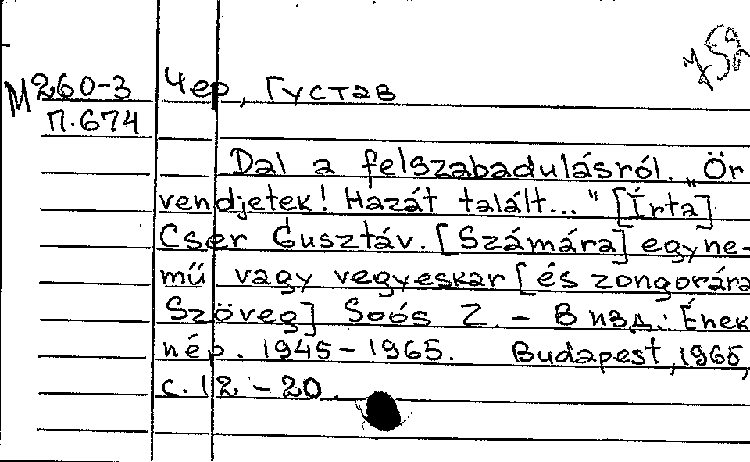 М260-3 Чер, Густав
П.674
Dal a felszabadulásról. „Ör
vendjetek! Hazát talált..." [Írta]
Cser Gusztáv. [Számára] egyne-
mű vagy vegyeskar [és zongorára
Szöveg] Soós Z. - В изд.: Ének
nép. 1945-1965. Budapest, 1965,
с. 12 - 20.